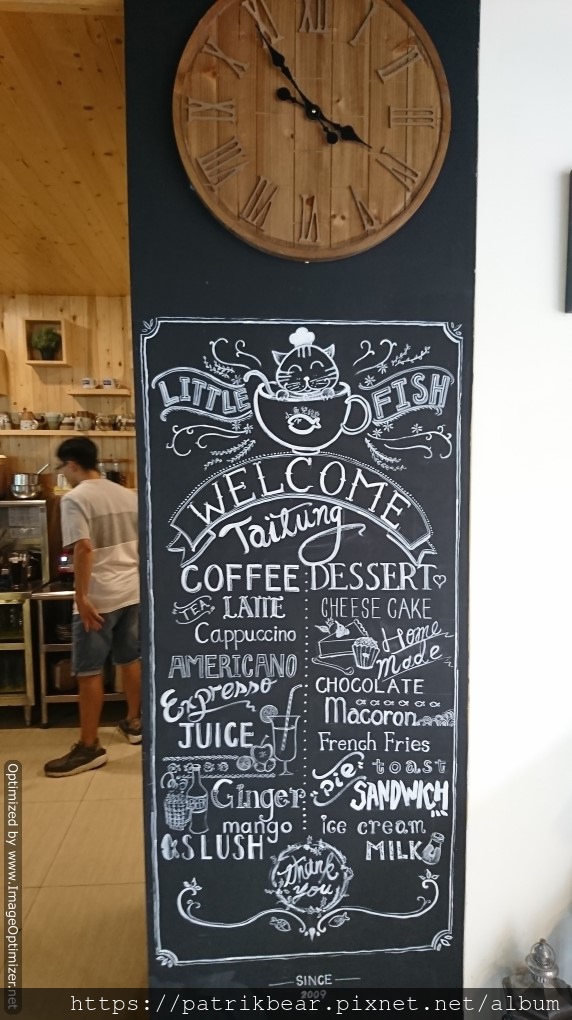 XII
I
II
III
IIII
V
VI
VII
VIII
IX
X
XI
LITTLE FISH
WELCOME
Taitung
COFFEE
TEA LATTE
Cappuccino
AMERICANO
Espresso
JUICE
Ginger
mango
& SLUSH
DESSERT
CHEESE CAKE
Home
made
CHOCOLATE
Macoron
French Fries
pie toast
SANDWICH
ice cream
MILK
Thank
you
SINCE
2009
Optimized by www.ImageOptimizer.net
https://patrikbear.pixnet.net/album